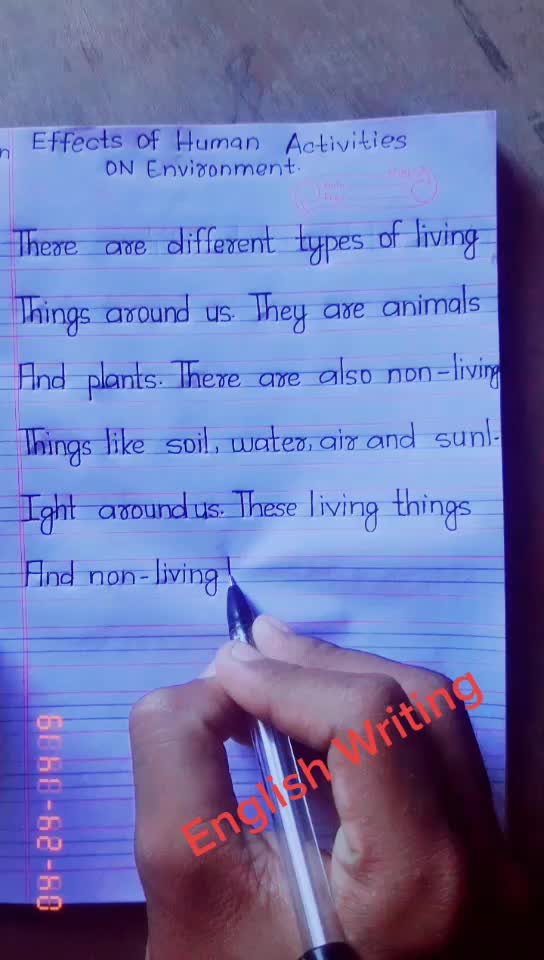 Effects of Human Activities
ON Environment.
There are different types of living
Things around us. They are animals
And plants. There are also non-living
Things like soil, water, air and sunl-
Ight around us. These living things
And non-living
English Writing